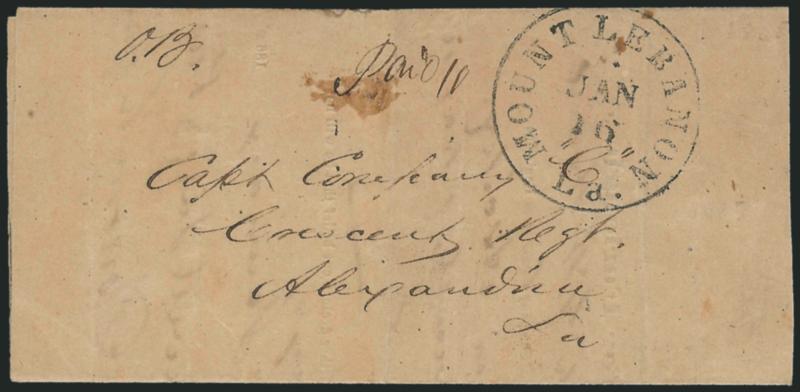 O.B.
Paid 10
MOUNT LEBANON
La.
JAN
16
Capt Company "C"
Crescent Regt.
Alexandria
La